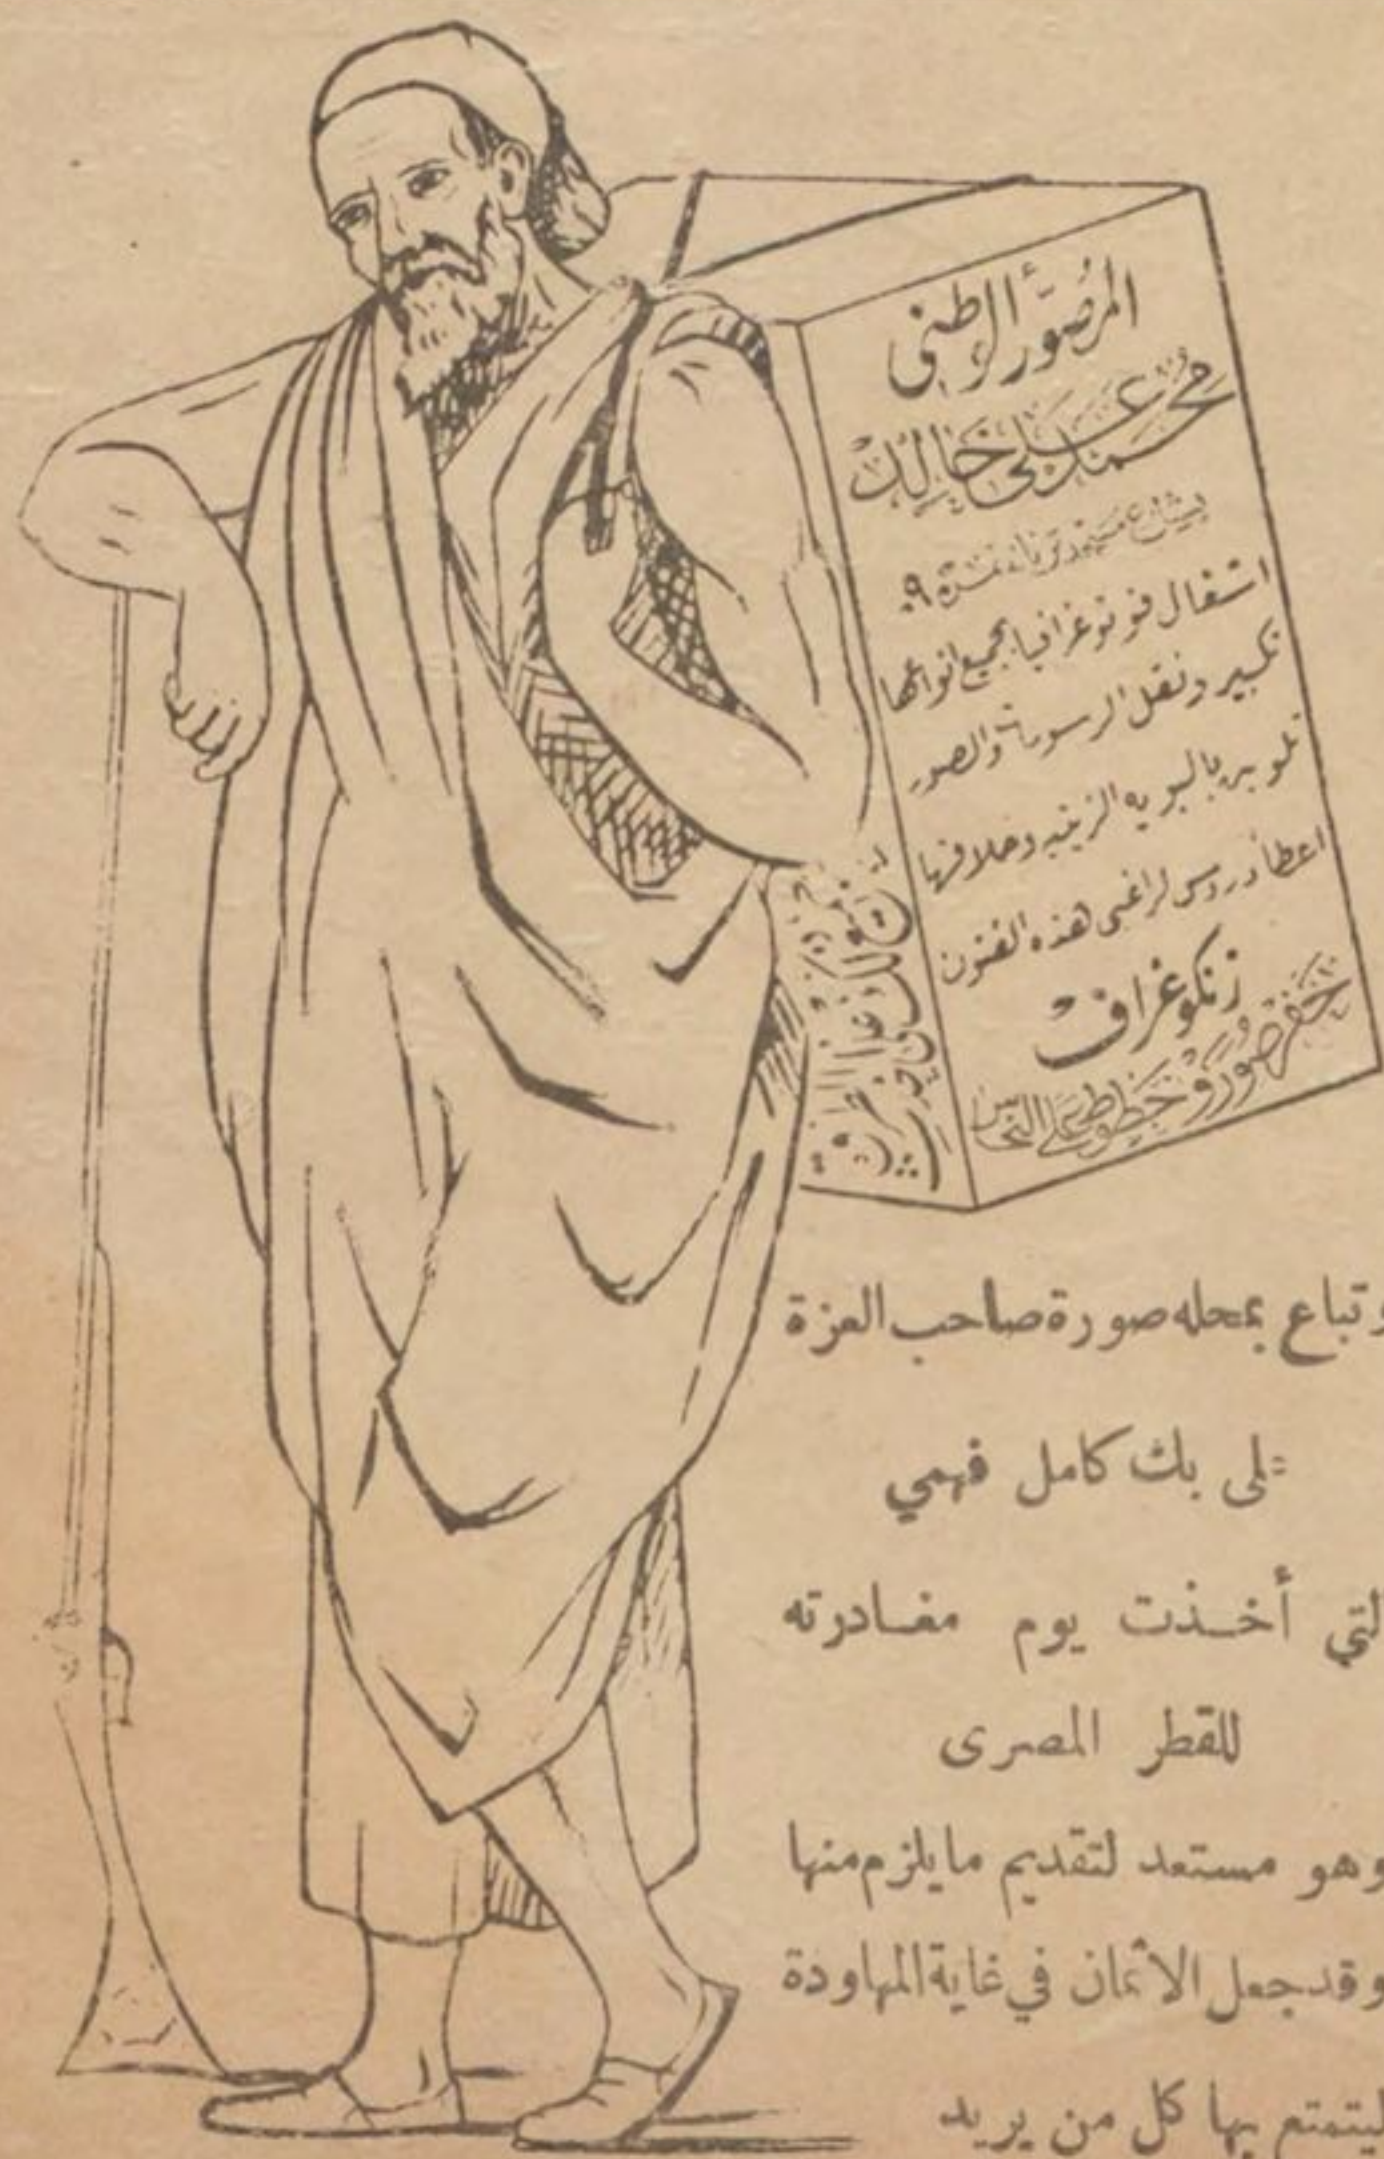 المصور الوطنى
محمد على خالد
بشارع محمد نمرة ٩
اشغال فوتوغرافيا بجميع انواعها
تكبير ونقل الرسومات والصور
بالبويه الزيتيه وخلافها
اعطا دروس لراغبى هذه الفنون
زنكوغراف
حفر صور وخطوط على النحاس
وتباع بمحله صورة صاحب العزة
لى بك كامل فهمي
لتي أخذت يوم مغادرته
للقطر المصرى
وهو مستعد لتقديم مايلزم منها
وقد جعل الأثمان في غاية المهاودة
ليتمتع بها كل من يريد